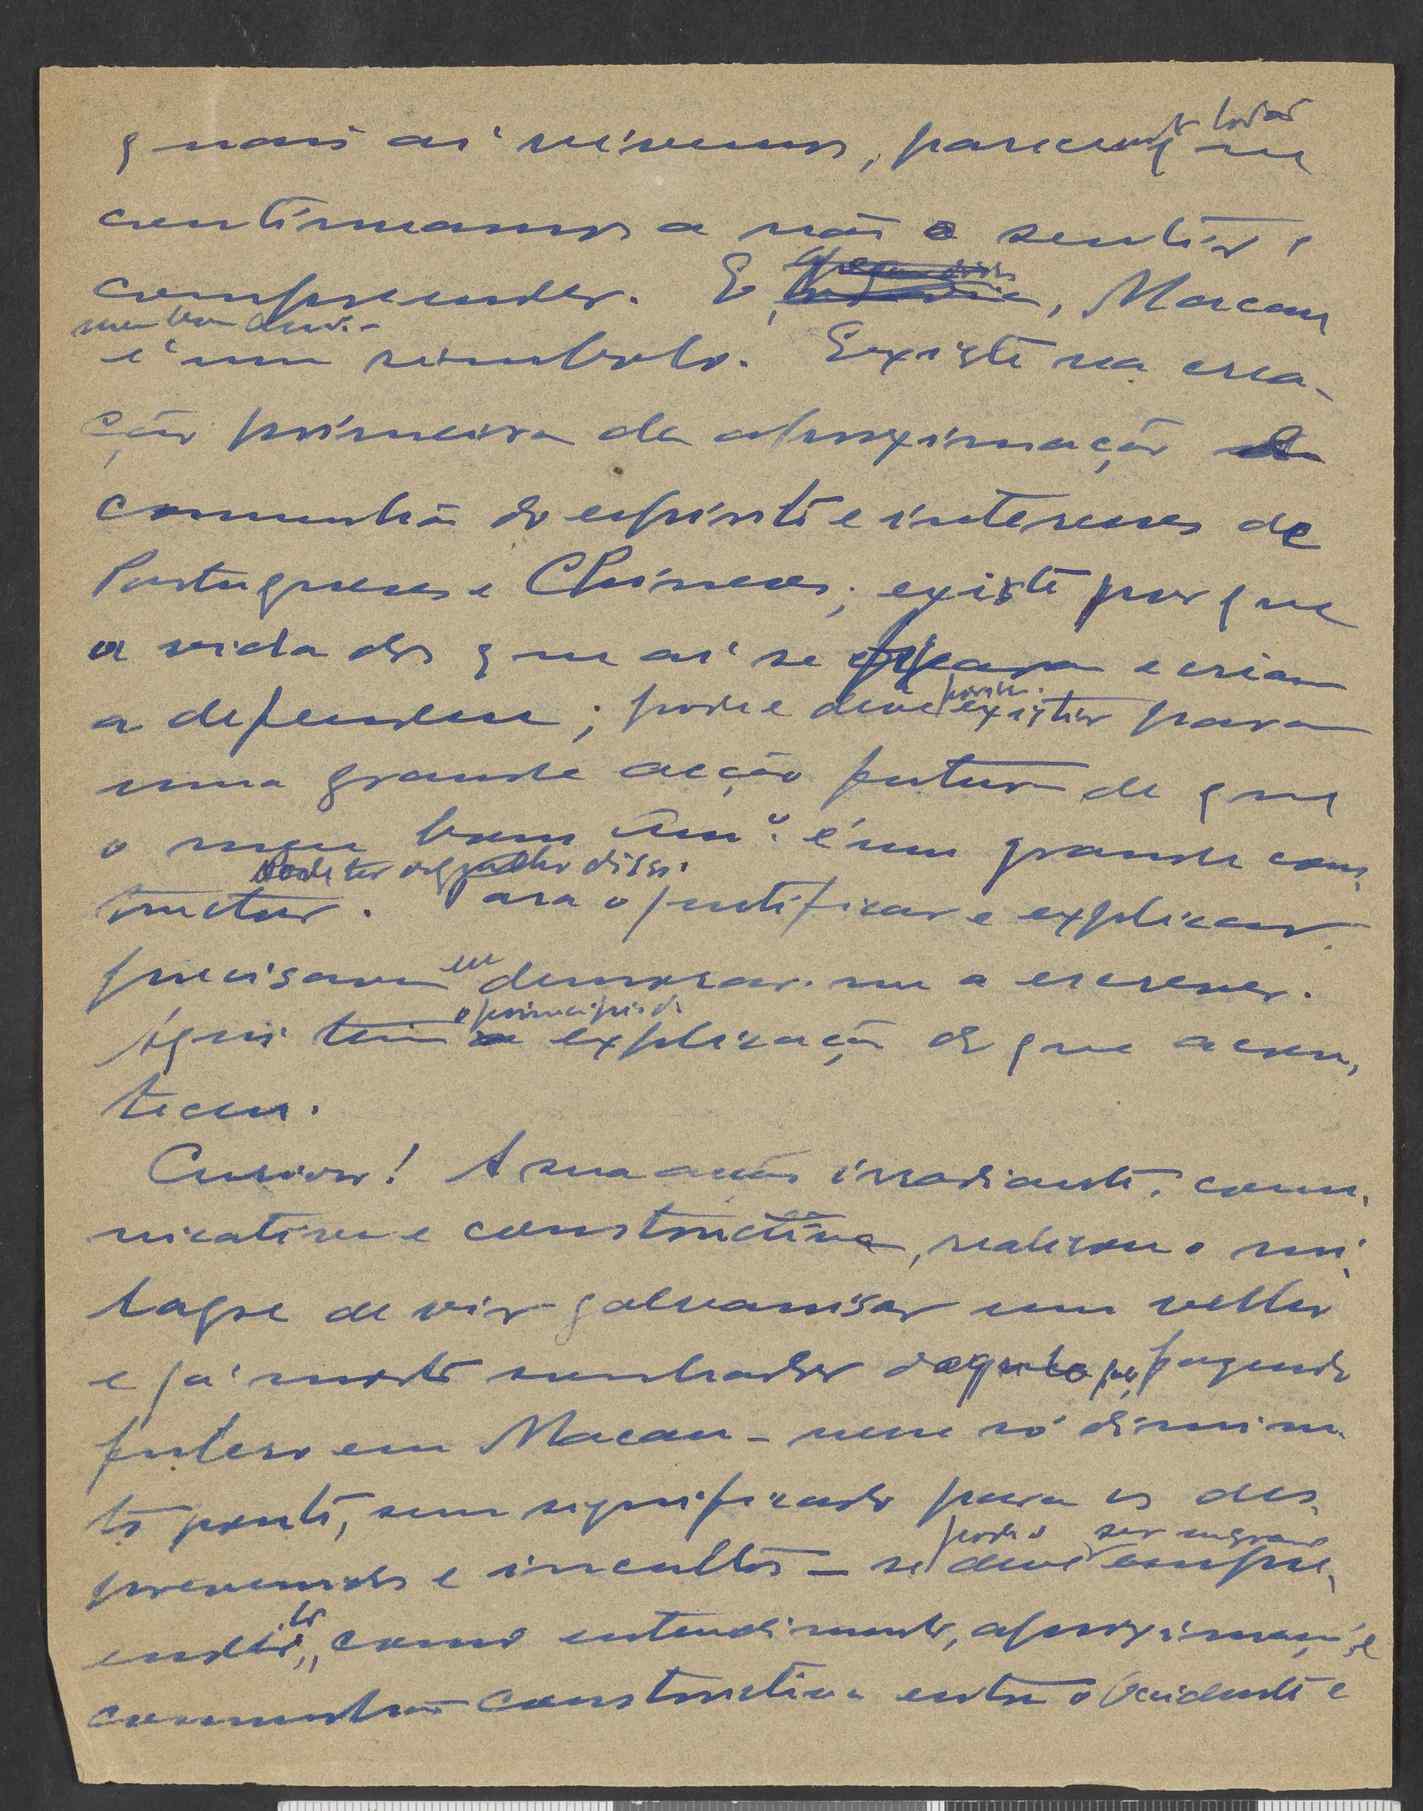 q mais aí vivemos, parece q todos
continuamos a não o sentir e
comprehender. E, Macau
meu bom Amº.
é um simbolo. Existe na crea-
ção primeira da aproximação
comunhão do espirito e interesses de
Portugueses e Chineses; existe por que
a vida dos que aí se fixaram e criam
a defendem; pode e deve porem existir para
uma grande acção futura de que
o meu bom Amº. é um grande cons-
pode ter orgulho disso.
tructor. Para o justificar e explicar
precisava eu demorar-me a escrever.
Aqui tem o principio da explicação do que acon-
teceu.
Curioso! A sua acção irradiante, comu-
nicativa e constructiva, realisou o mi-
lagre de vir galvanisar um velho
e já morto sonhador pugnando
em Macau - nem só diminu-
to ponto, sem significado para os des-
prevenidos e incultos - se deve
como entendimento, aproximação e
comunhão constructiva entre o Ocidente e